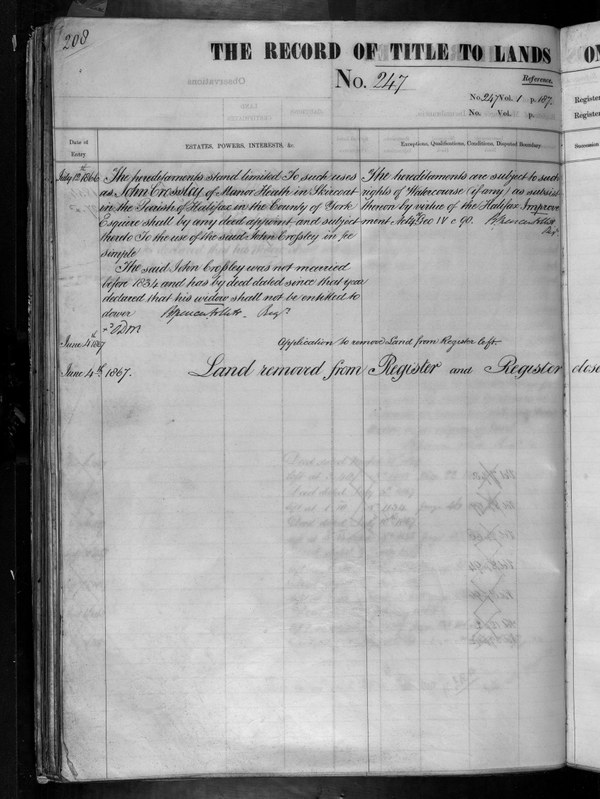 208
THE RECORD OF TITLE TO LANDS
No. 247
Reference.
No. 247 Vol. 1 p. 187.
No. Vol. p.
Date of
Entry.
ESTATES, POWERS, INTERESTS, &c.
Exceptions, Qualifications, Conditions, Disputed Boundary.
July 12th 1866
The hereditaments stand limited To such uses
as John Crossley of Manor Heath in Skircoat
in the Parish of Halifax in the County of York
Esquire shall by any deed appoint and subject
thereto To the use of the said John Crossley in fee
simple
The said John Crossley was not married
before 1834 and has by deed dated since that year
declared that his widow shall not be entitled to
dower Spencer Follett. Regr
The hereditaments are subject to such
rights of Watercourse (if any) as subsist
thereon by virtue of the Halifax Improve
ment Act 4 Geo IV c 90. Spencer Follett
Regr
June 4th 1867
Application to remove Land from Register left.
June 4th 1867.
Land removed from Register and Register close
ON
Register
Register
Succession